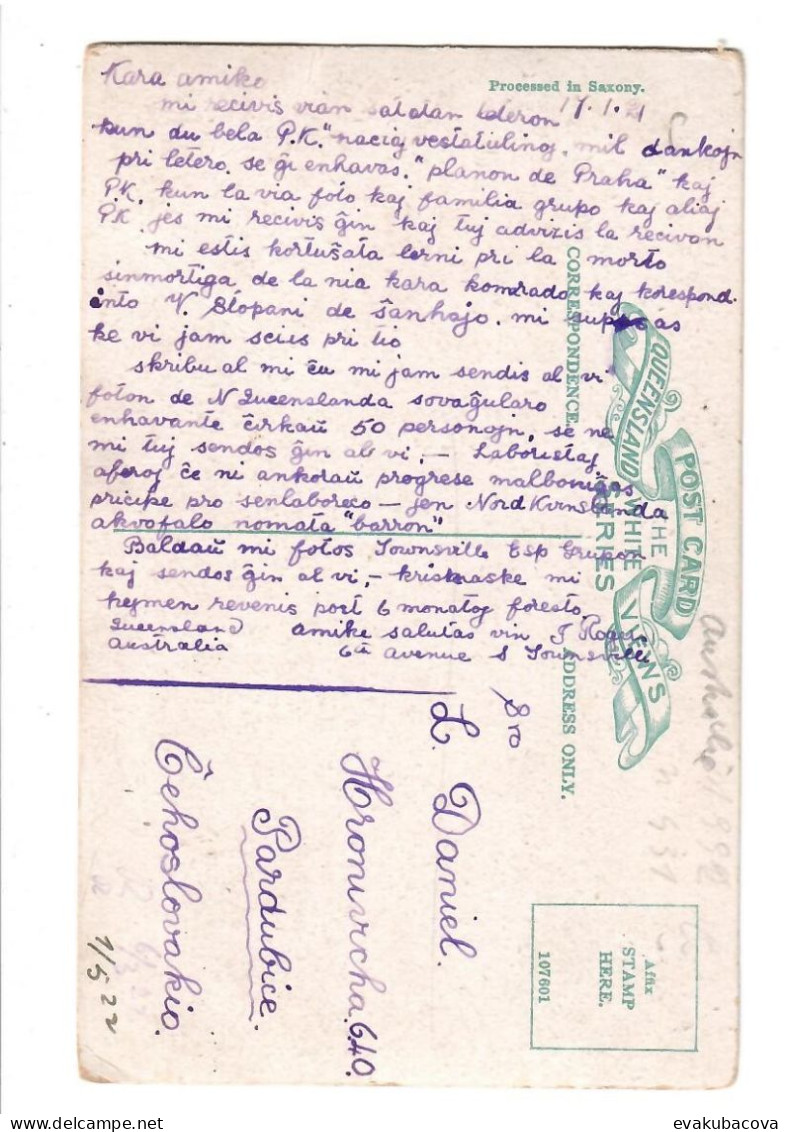 Processed in Saxony.
Kara amiko
mi recivis vian sat
leteron 17.1.21
kun du bela P.K. "naciaj mil dankojn
pri letero. se ĝi enhavas. "planon de Praha" kaj
P.K. kun la via foto kaj familia grupo kaj aliaj
P.K. jes mi recivis ĝin kaj tuj advizis la recivon
mi estis kortuŝata lerni pri la morto
sinmortiga de la nia kara komrado kaj korespond
into V. Slopani de Ŝanhajo. mi
ke vi jam scius pri tio
skribu al mi ĉu mi jam sendis al vi
foton de N Queenslanda sovaĝularo
enhavante ĉirkaŭ 50 personojn, se ne
mi tuj sendos ĝin al vi, — Laboristaj
aferoj ĉe ni ankoraŭ progrese malboniĝas
pricipe pro senlaboreco — jen Nord Kvnslanda
akvofalo nomata "barron"
Baldaŭ mi fotos Townsville Esp Grupon
kaj sendos ĝin al vi, — kristnaske mi
hejmen revenis post 6 monatoj foresto
Queensland amike salutas vin J Roger
Australia 6th avenue S Townsville
CORRESPONDENCE.
ADDRESS ONLY.
QUEENSLAND
POST CARD
THE
WHITE VIEWS
SERIES
Sro
L. Daniel.
Hronivicha 640.
Pardubice.
Ĉehoslovakio.
1/5 22
Affix
STAMP
HERE.
107601
evakubacova